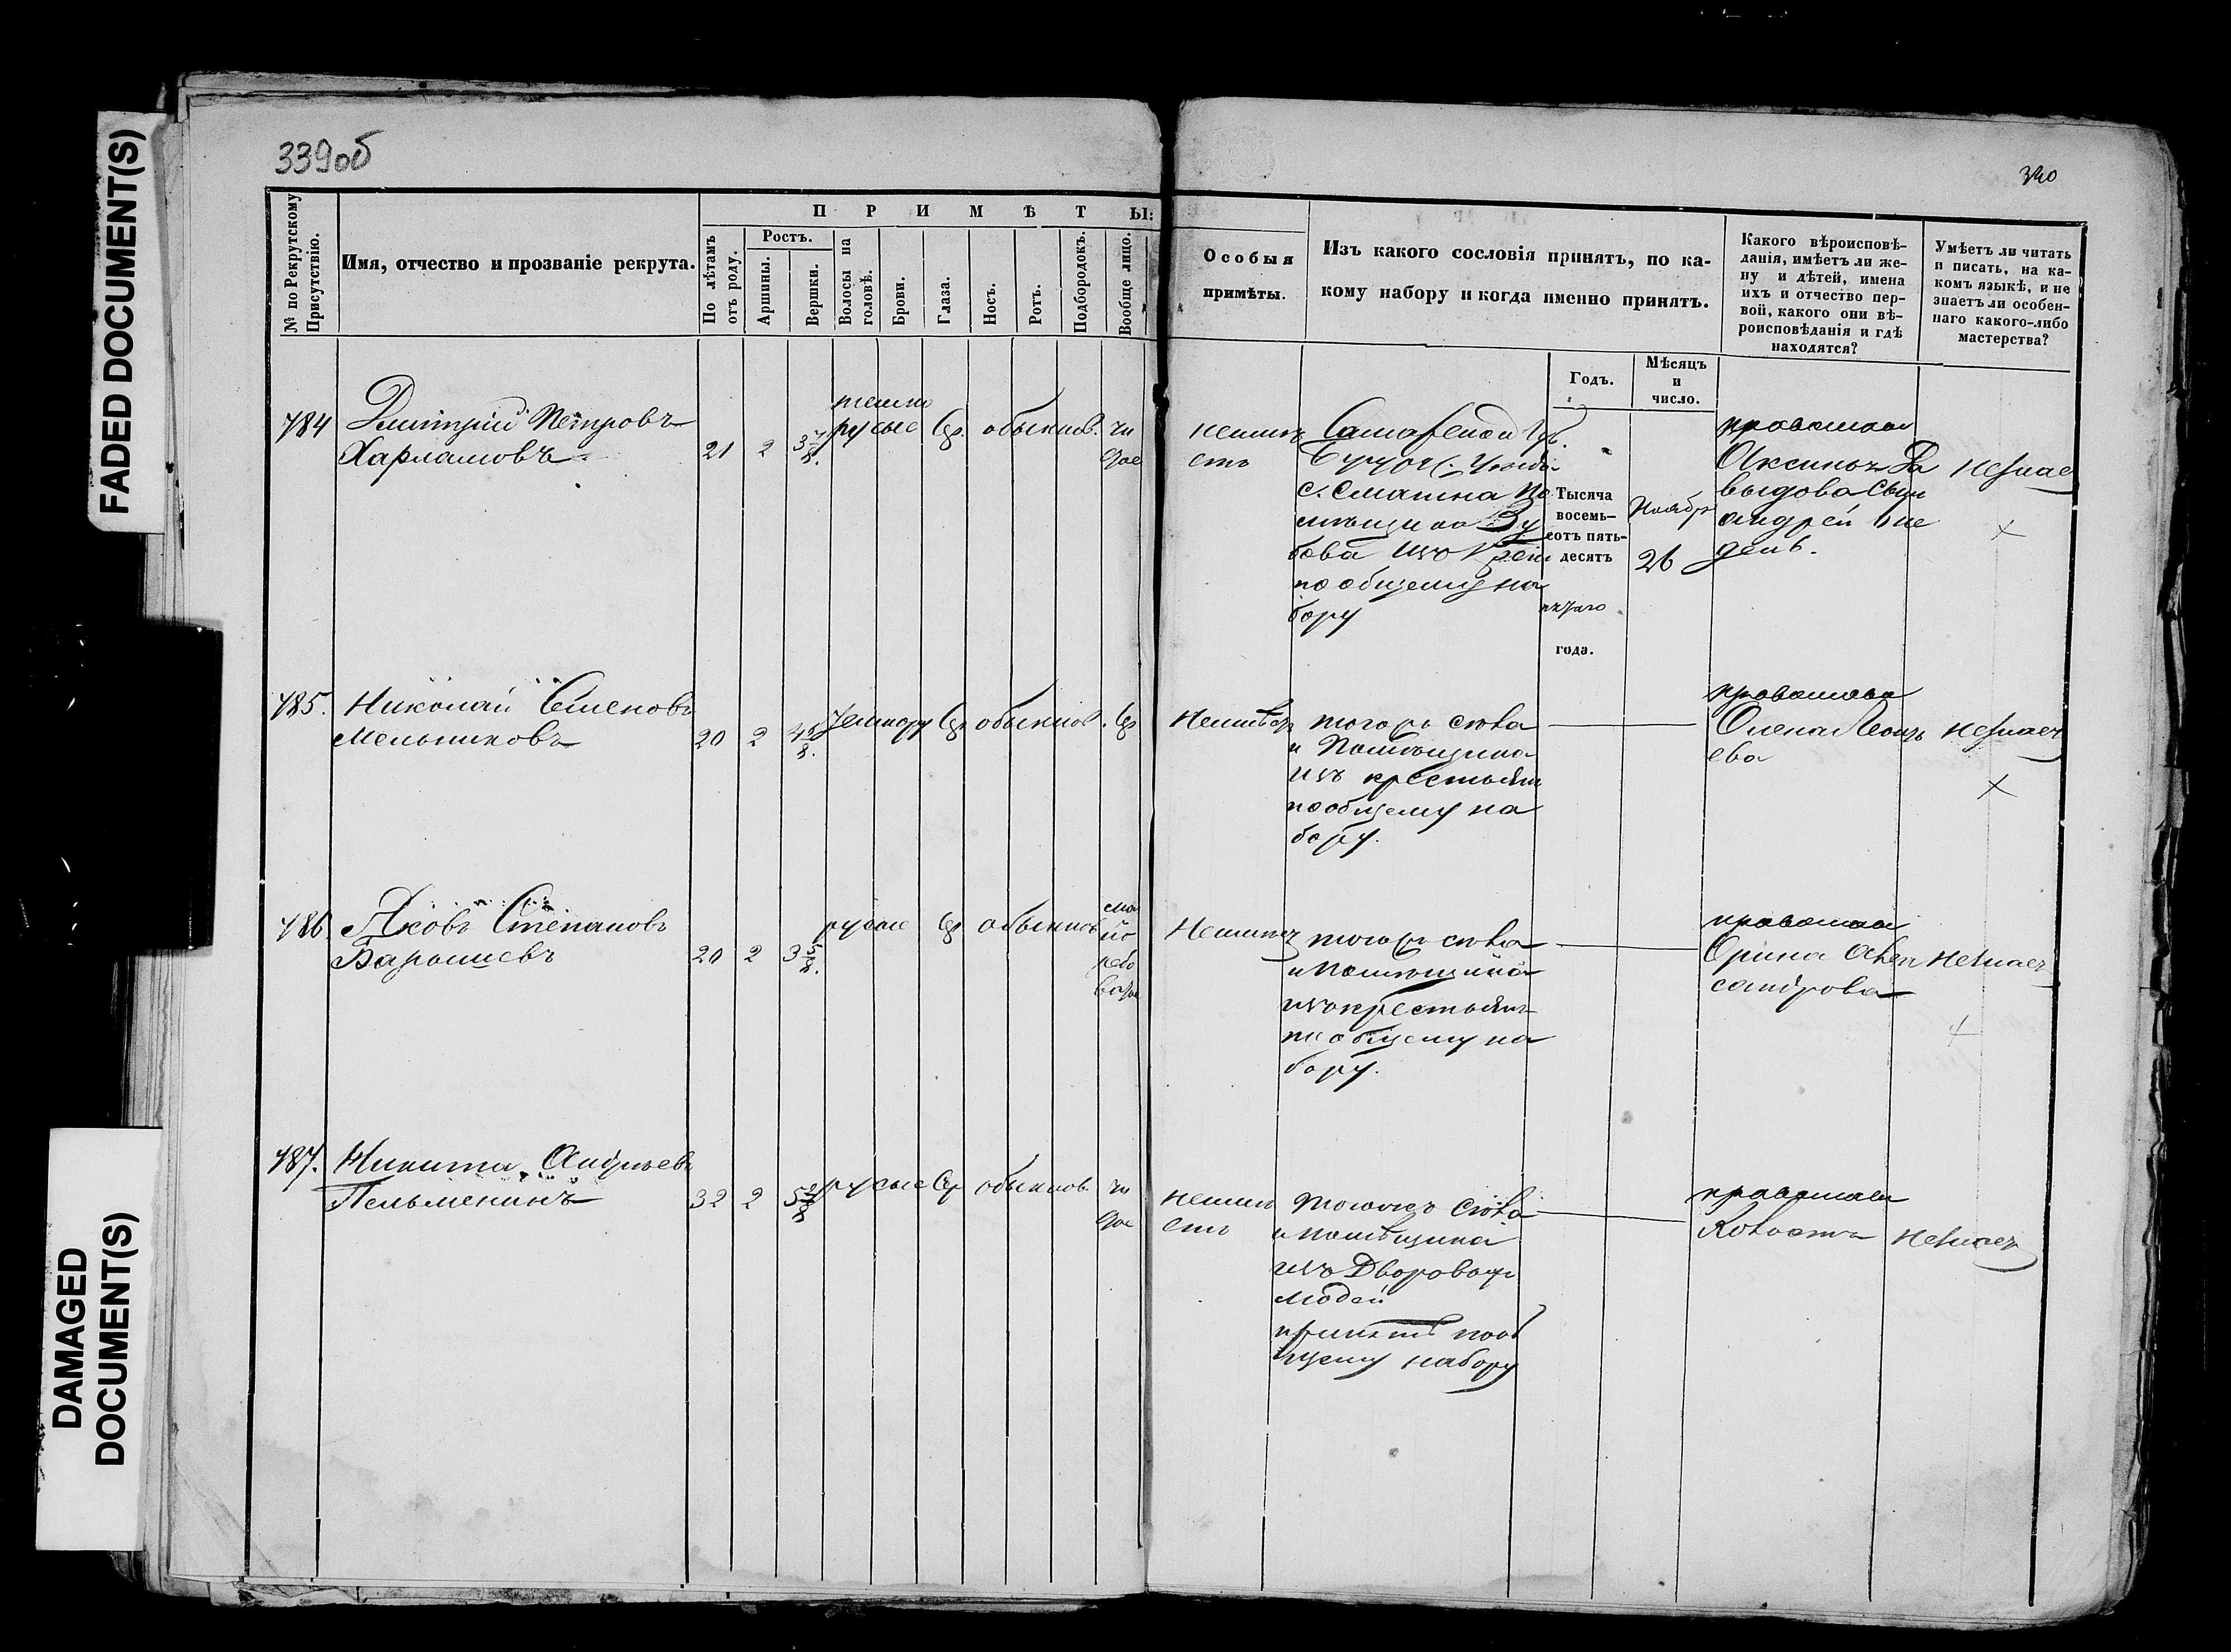 FADED DOCUMENT(S)
DAMAGED
DOCUMENT(S)
339об
340
№ по Рекрутскому
Присутствію.
Имя, отчество и прозваніе рекрута.
ПРИМѢТЫ:
По лѣтамъ
отъ роду.
Ростъ.
Аршины.
Вершки.
Волосы на
головѣ.
Брови.
Глаза.
Носъ.
Ротъ.
Подбородокъ.
Вообще лицо.
Особыя
примѣты.
Изъ какого сословія принятъ, по ка-
кому набору и когда именно принятъ.
Годъ.
Мѣсяцъ
и
число.
Какого вѣроисповѣ-
данія, имѣетъ ли же-
ну и дѣтей, имена
ихъ и отчество пер-
вой, какого они вѣ-
роисповѣданія и гдѣ
находятся?
Умѣетъ ли читать
и писать, на ка-
комъ языкѣ, и не
знаетъ ли особен-
наго какого-либо
мастерства?
784
Дмитрій Петровъ
Харламовъ
21
2
3 7/8.
темно
русые
Ср.
обыкнов.
чи
стое
неимѣ
етъ
Самарской Губ.
Бугур. Уезда
По
мѣщика Зу
бова изъ Крест
по общему на
бору
Тысяча
восемь-
сотъ пять-
десятъ
пятаго
года.
Ноябр
26
православ
Аксинья Да
выдова Сын
Андрей
незнает
785.
Николай Семеновъ
Мельниковъ
20
2
4 5/8.
темнору
Ср
обыкнов.
Ср
Неимѣет
тогожъ села
и Помѣщика
изъ крестьян
пообщему на
бору.
православ
Олена Леон
ева
незнает
786
Яковъ Степановъ
Барышевъ
20
2
3 5/8.
русые
Ср
обыкнов
ма
ло
рябо
ватое
Неимѣет
тогожъ села
и помѣщика
изъ крестьянъ
по общему на
бору.
православ
Орина Алек
сандрова
незнает
787.
Никита Андреевъ
Пельменинъ
32
2
русые
Ср
обыкнов
чи
стое
неимѣ
етъ
тогожъ села
и помѣщика
изъ Дворовых
людей
принятъ пооб
щему набору
православ
холостъ
незнает